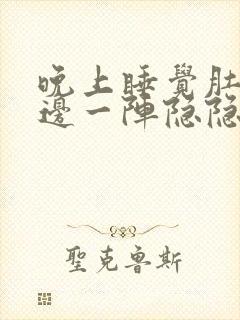 晚上睡覺肚
邊一陣隐隐
聖克魯斯